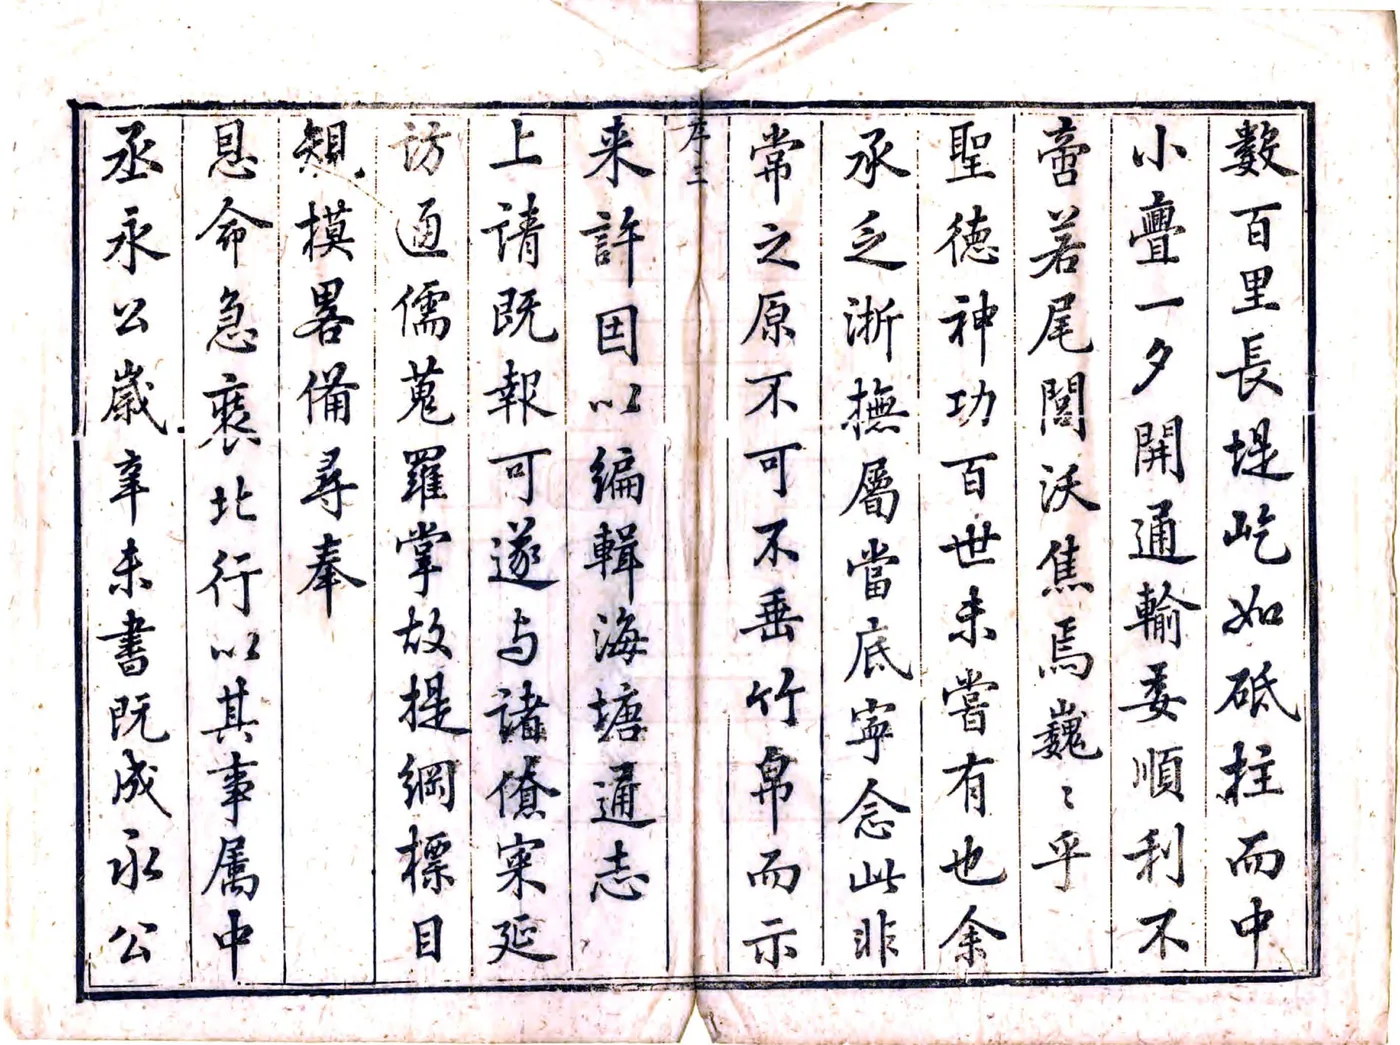 數百里長堤屹如砥柱而中
小亹一夕開通輸委順利不
啻若尾閭沃焦焉巍〻乎
聖德神功百世未嘗有也余
承乏浙撫屬當底寧念此非
常之原不可不垂竹帛而示
序三
来許因以編輯海塘通志
上請既報可遂与諸僚寀延
訪通儒蒐羅掌故提綱標目
規模畧備尋奉
恩命急裝北行以其事属中
丞永公歲辛未書既成永公